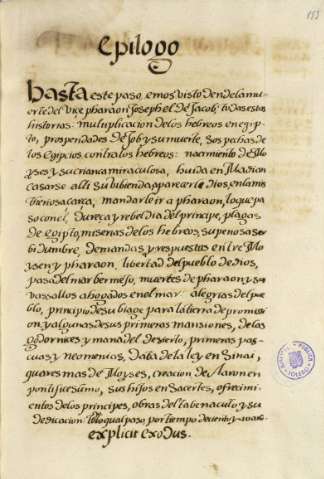 155
Epilogo
Hasta este paso, emos visto dende la mu-
erte del vice pharaon Joseph el de Jacob, todas estas
historias: multiplicacion de los hebreos en egip-
to, prosperidades de Job y su muerte, sospechas de
los Egipcios contra los hebreos: nacimiento de Mo-
yses y su crianca miraculosa, huida en Madian
casarse alli su subienda, aparecerle Dios, en la mis-
teriosa carca, mandarle ir a pharaon, lo que pa-
so con el, dureça y rebeldia del principe, plagas
de egipto, miserias de los hebreos, su penosa ser-
bidumbre, demandas y respuestas entre Mo-
ysen y pharaon, libertad del pueblo de dios,
pasa del mar bermejo, muertes de pharaon y sus
vasallos ahogados en el mar alegrias del pue-
blo, principio de su biage para la tierra de promis-
ion y algunas de sus primeras mansiones, de las
godornices y mana del desierto, primeras pas-
cuas y neomenias, data de la ley en Sinai,
quaresmas de Moyses, creacion de Aaron en
pontifice sumo, sus hijos en sacertes, ofrecimi-
entos de los principes, obras del tabernaculo y su
dedicacion todo lo qual paso por tiempo de
explicit exodus.